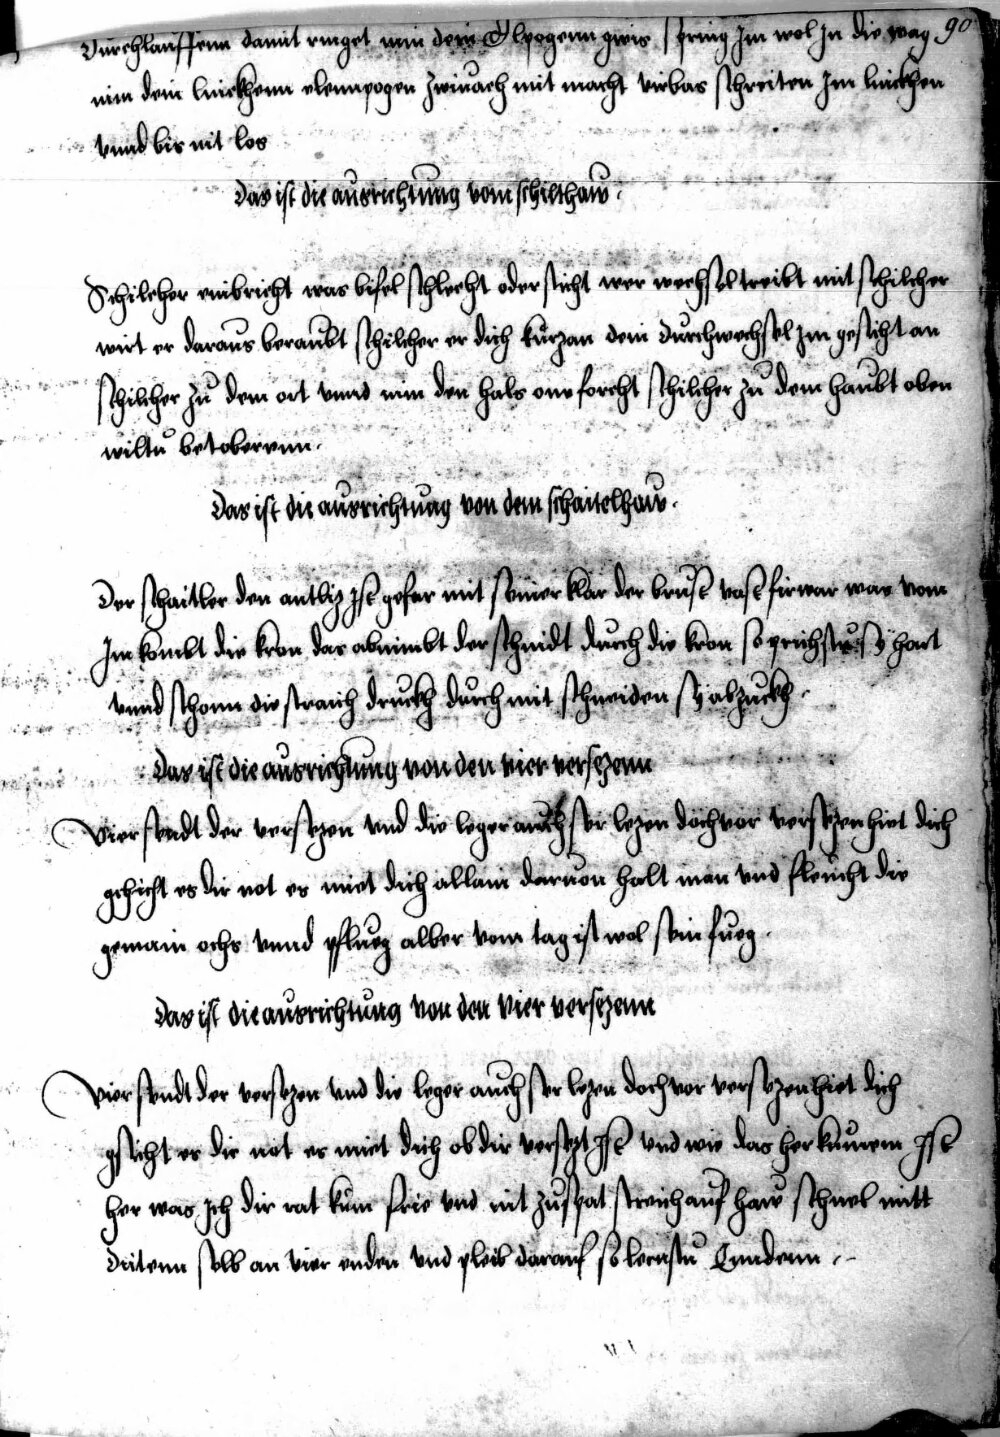 90
Durchlauffenn damit ringet nim dein Elpogenn gwis spring Im wol In die wag
nim dein linckhenn elennpogen zwiuach mit macht virbas schreiten Im linckhen
vnnd bis nit los
Das ist die ausrichtung vom schilthaw.
Schilcher einbricht was bifel schlecht oder sticht wer wechsel treibt mit schilcher
wirt er daraus beraubt schilcher er dich kurz an dem durchwechsel Im gesicht an
schilcher zu dem ort vnnd nim den hals one forcht schilcher zu dem haubt oben
wiltu betobernn.
Das ist die ausrichtung von dem schaitelhaw.
Der schaitler den antliz Ist gefar mit seiner klar der brust vast firwar was vom
Im kombt die kron das abnimbt der schnidt durch die kron so prichstu sy hart
vnnd schonn die straich druckh durch mit schneiden sy abzuckh.
Das ist die ausrichtung von den vier versezenn
Vier sendt der versezen vnd die leger auch ser lezen doch vor versezen hiet dich
gschicht es dir not es miet dich allain daruon halt man vnd fleucht die
gemain ochs vnnd pflueg alber vom tag ist wol sein fueg.
Das ist die ausrichtung von den vier versezenn
Vier sendt der versezen vnd die leger auch ser lezen doch vor versezen hiet dich
gsicht es dir not es miet dich ob dir versezt Ist vnd wie das her kumen Ist
her was Ich dir rat kum frie vnd nit zuspat streich auf haw schnel mitt
driten selb an vier enden vnd pleib darauf so lernstu Enndenn